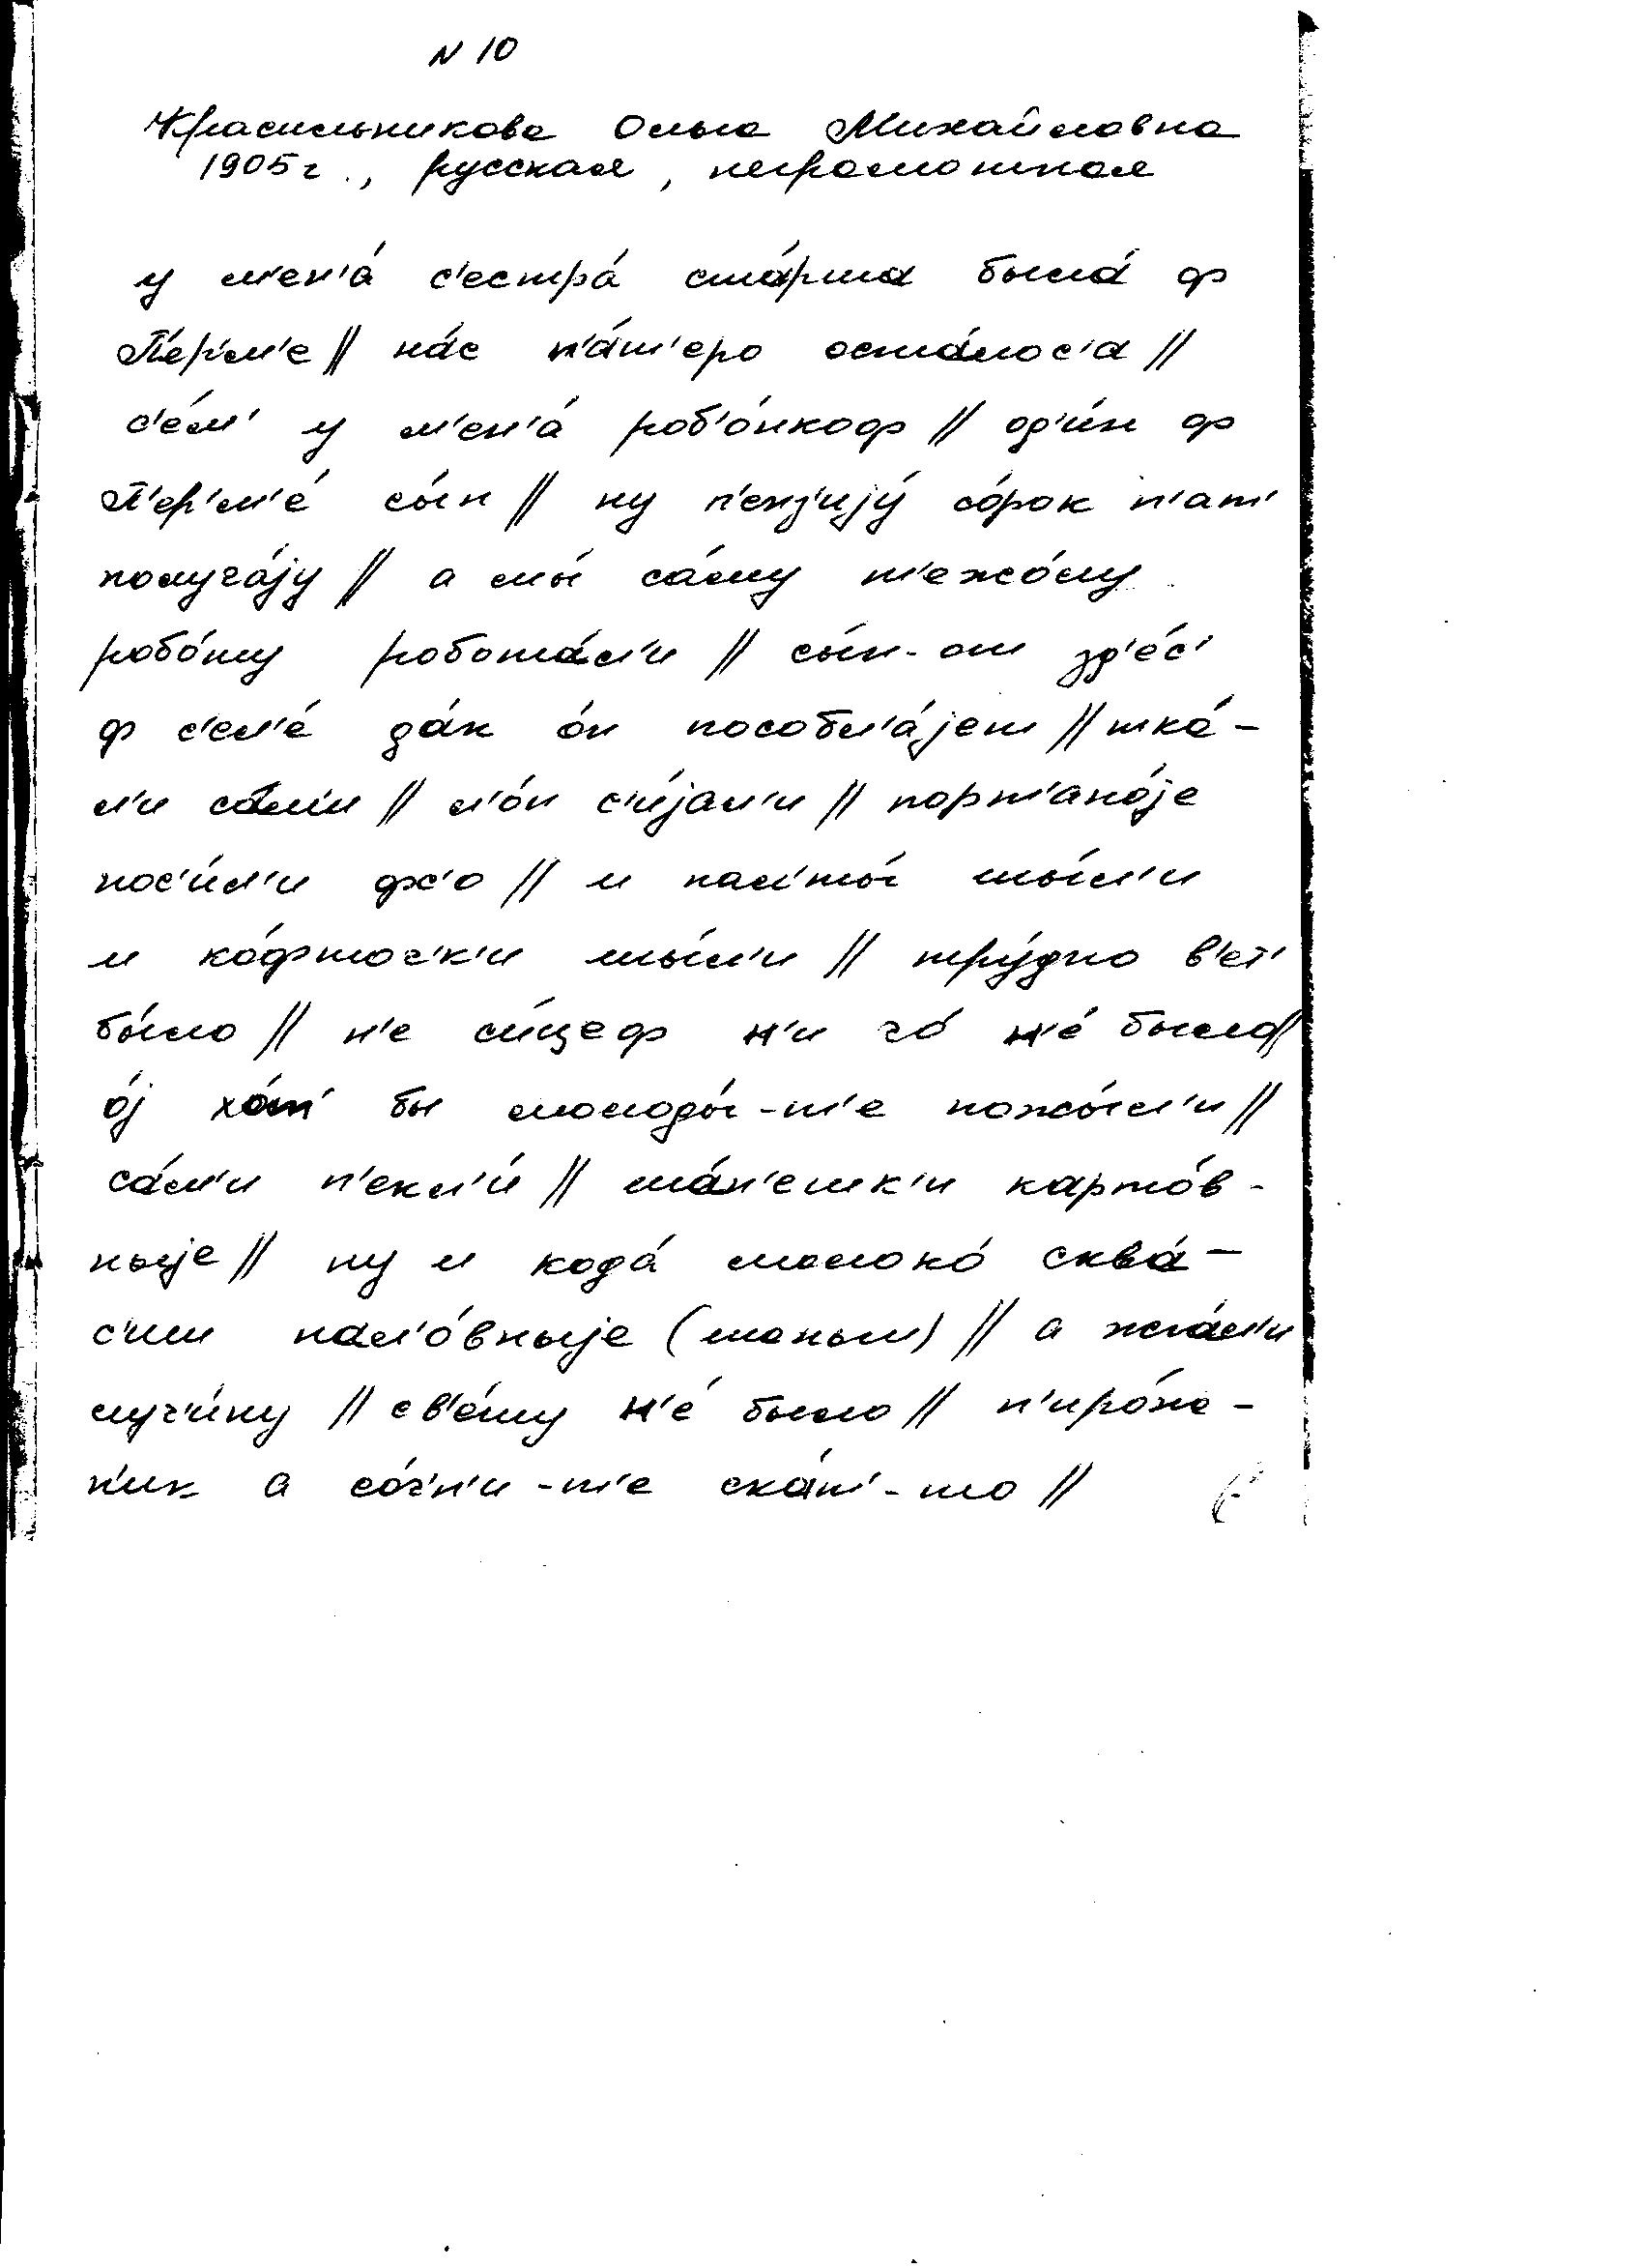 N 10
Красильникова Ольга Михайловна
1905 г., русская, неграмотная
у м'ен'а́ с'естра́ ста́рша была́ ф
П'е́р'м'е // на́с п'а́т'еро оста́лос'а //
с'е́м' у м'ен'а́ роб'о́нкоф // од'и́н ф
П'ер'м'е́ сы́н // ну п'енз'ију́ со́рок п'ат'
получа́јy // а мы́ са́му т'ежо́лу
робо́ту робота́л'и // сы́н-от зд'е́с'
ф с'ел'е́ да́к о́н пособл'а́јет // тка́-
л'и са́м'и // л'о́н с'и́јал'и // порт'ано́је
нос'и́л'и фс'о // и пал'ты́ шы́л'и
и ко́фточ'к'и шы́л'и // тру́дно в'ет'
бы́ло // н'е си́цеф н'и чо́ н'е́ было //
о́ј хо́т' бы молоды́-т'е пожы́л'и //
са́м'и п'екл'и́ // ша́н'ешк'и карто́в-
ныје // ну и кода́ молоко́ сква́-
с'иш нал'о́вныје (шаньги) // а жгл'и
луч'и́ну // св'е́ту н'е́ было // п'иро́ж-
н'ик а со́чн'и-т'е ска́т'-то //